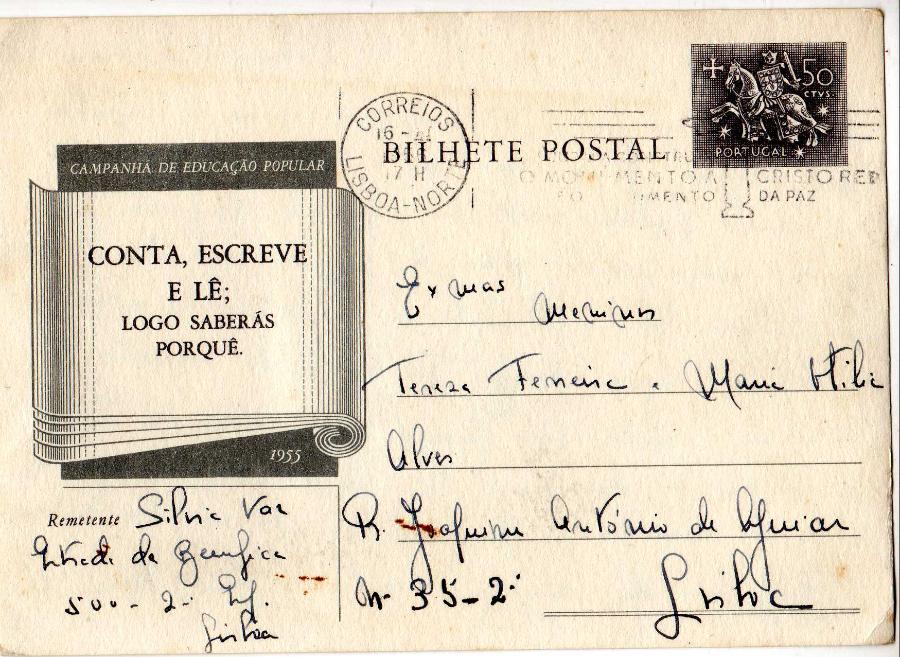 BILHETE POSTAL
50
CTVS
PORTUGAL
CORREIOS
16 -
17 H
LISBOA-NORTE
O MONUMENTO A CRISTO REI
DA PAZ
CAMPANHA DE EDUCAÇÃO POPULAR
CONTA, ESCREVE
E LÊ;
LOGO SABERÁS
PORQUÊ.
1955
Exmas
Meninas
Tereza Ferreira e Maria Otilia
Alves
R. Joaquim António de Aguiar
Nº 35-2º
Lisboa
Remetente Silvia Vaz
Estrada de Benfica
500-2º
Lisboa